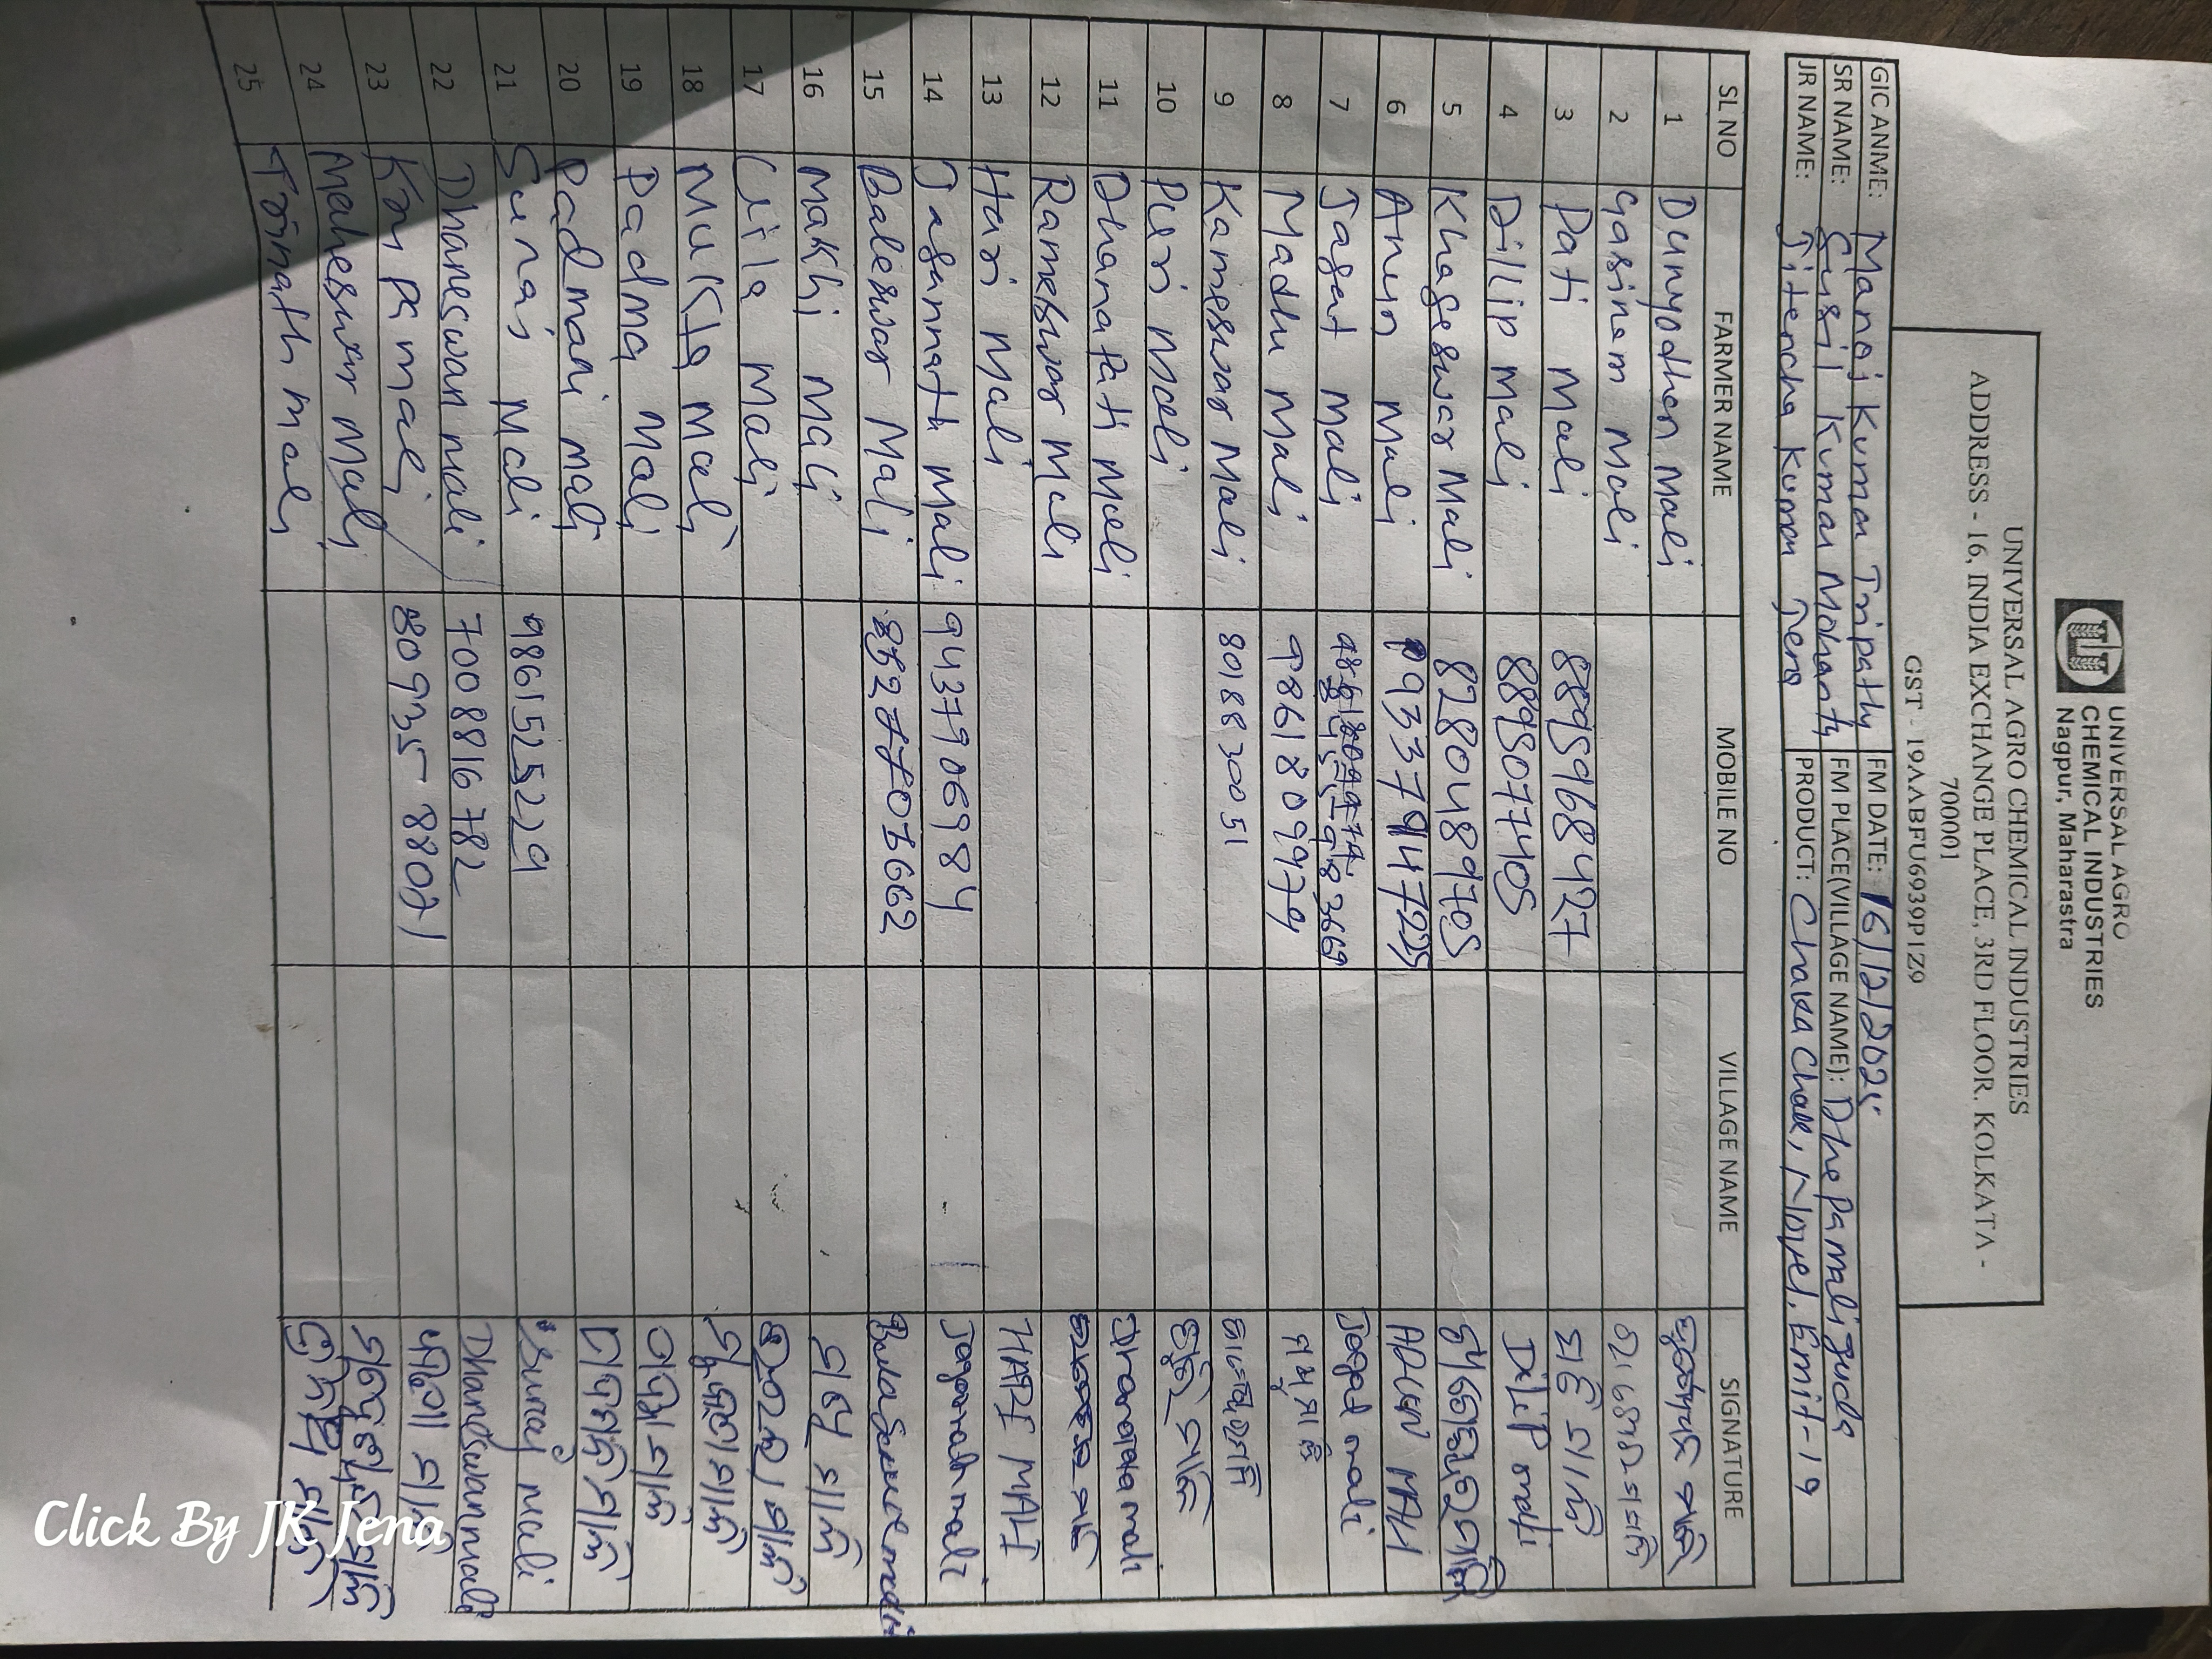 UNIVERSAL AGRO
CHEMICAL INDUSTRIES
Nagpur, Maharastra
UNIVERSAL AGRO CHEMICAL INDUSTRIES
ADDRESS - 16, INDIA EXCHANGE PLACE, 3RD FLOOR. KOLKATA -
700001
GST - 19AABFU6939P1Z9
GIC ANME: Manoj Kumar Tripathy FM DATE: 16/12/2025
SR NAME: Susil Kumar Mohanty FM PLACE(VILLAGE NAME): Dhepamaliguda
JR NAME: Jitendra Kumar Jena PRODUCT: Chaka Chak, Novel, Emit-19
SL NO FARMER NAME MOBILE NO VILLAGE NAME SIGNATURE
1 Duryodhan Mali
2 Mali
3 Pati Mali 8895968427 ମାଳି
4 Dillip Mali 8895077405 DiliP mali
5 Khageswar Mali 8280489705
6 Arjun Mali 9337947225 MALI
7 Jagat Mali Jagat mali
8 Madhu Mali 9861809974 ମଧୁ ମାଳି
9 Kameswar Mali 8018830051
10 Puri Mali ମାଳି
11 Dhanapati Mali mali
12 Rameswar Mali
13 Hari Mali HARI MALI
14 Jagannath Mali 9437906984 mali
15 Baleswar Mali
16 Makhi Mali ମାଳି
17 Lila Mali ମାଳି
18 Mukta Mali ମାଳି
19 Padma Mali ପଦ୍ମ ମାଳି
20 Padmani Mali ମାଳି
21 Mali 9861525229 Mali
22 Dhaneswar Mali 7008816782 Dhaneswar mali
23 ମାଳି
24 Maheswar Mali ମାଳି
25 Mali ମାଳି
Click By JK Jena